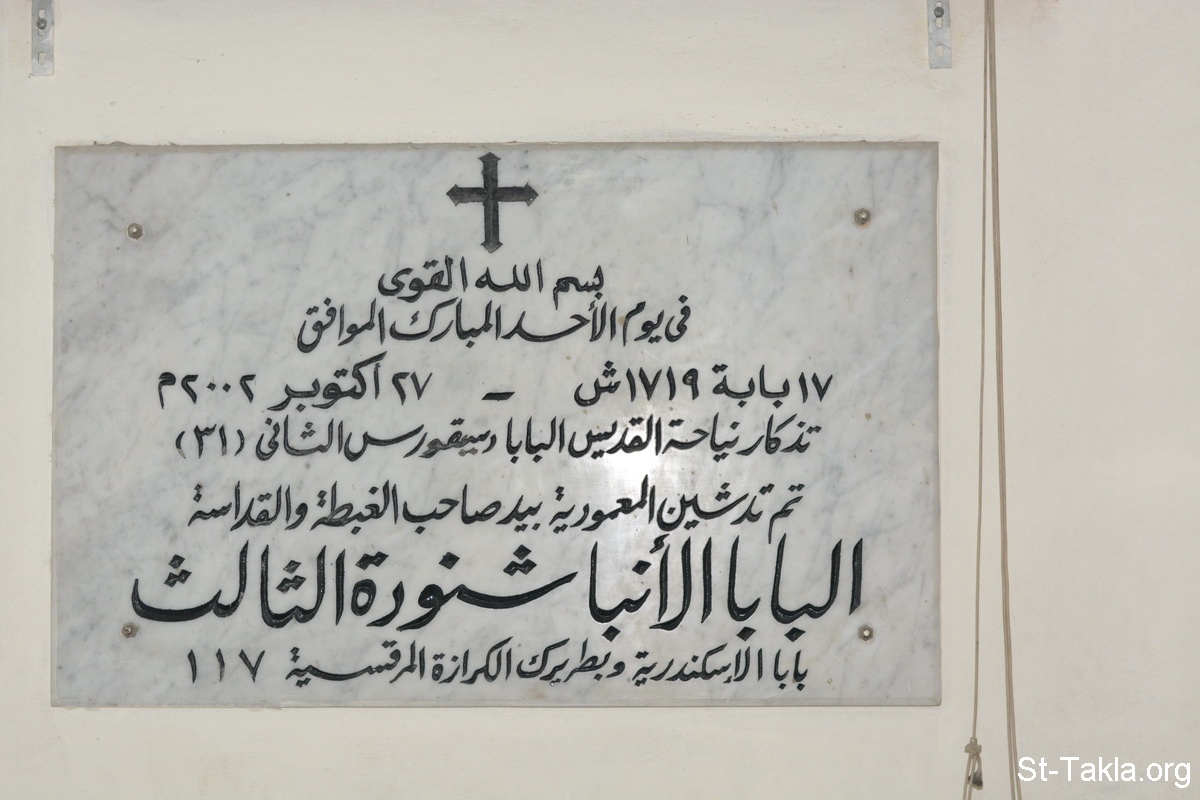 بسم الله القوى
فى يوم الأحد المبارك الموافق
١٧ بابة ١٧١٩ش – ٢٧ أكتوبر ٢٠٠٢م
تذكار نياحة القديس البابا ديسقورس الثانى (٣١)
تم تدشين المعمورية بيد صاحب الغبطة والقداسة
البابا الأنبا شنودة الثالث
بابا الإسكندرية وبطريرك الكرازة المرقسية ١١٧
St-Takla.org